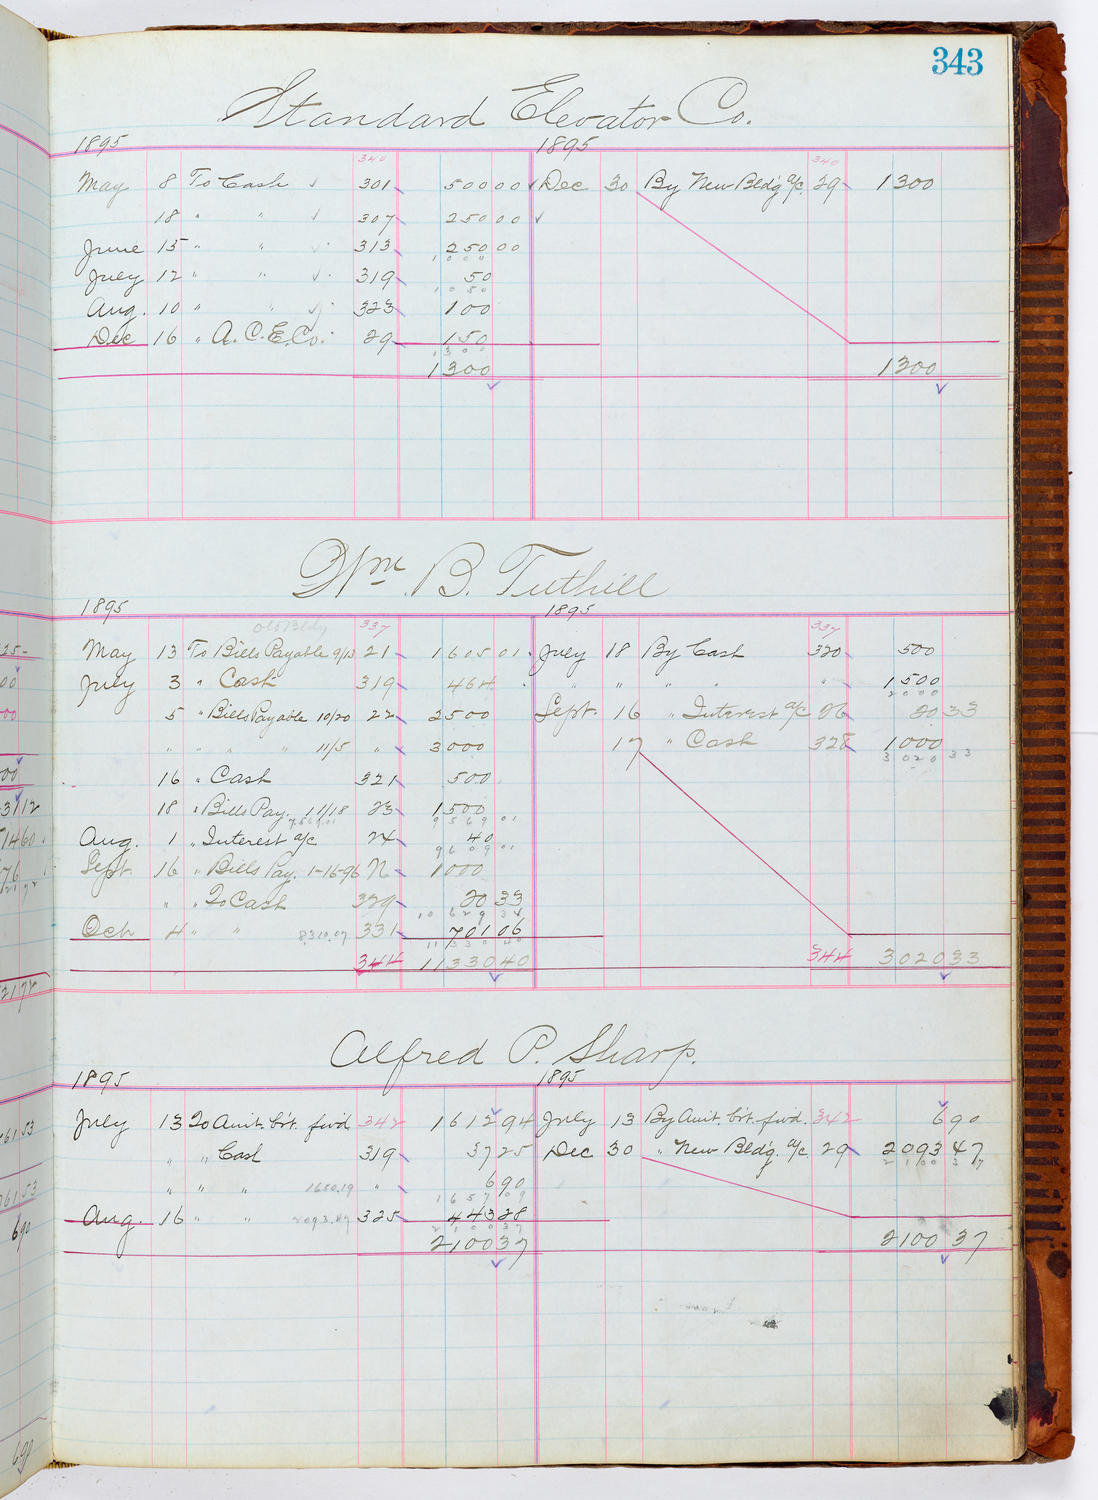 343
Standard Elevator Co.
1895 1895
340 340
May 8 To Cash 301 500 00 Dec 30 By New Bldg a/c 29 1300
18 " " 307 250 00
June 15 " " 313 250 00
1000
July 12 " " 319 50
1050
Aug. 10 " " 323 100
Dec 16 " A.C.E.Co. 29 150
1300
1300 1300
Wm B. Tuthill
1895 1895
Old Bldg 337 337
May 13 To Bills Payable 9/13 21 1605 01 July 18 By Cash 320 500
July 3 " Cash 319 464 " " " " " 1500
2000
5 " Bills Payable 10/20 22 2500 Sept. 16 " Interest a/c 26 20 33
" " " " 11/5 " 3000 17 " Cash 328 1000
3020 33
16 " Cash 321 500
18 " Bills Pay. 11/18 23 1500
7569.01 9569 01
Aug. 1 " Interest a/c 24 40
9609 01
Sept. 16 " Bills Pay. 1-16-96 26 1000
" " To Cash 329 20 33
10629 34
Oct 4 " " 8310.07 331 701 06
11330 40
344 11330 40 344 3020 33
Alfred P. Sharp.
1895 1895
July 13 To Amt. bt. fwd 342 1612 94 July 13 By Amt. bt. fwd. 342 690
" " Cash 319 37 25 Dec 30 " New Bldg. a/c 29 2093 47
2100 37
" " " 1650.19 " 690
1657 09
Aug. 16 " " 2093.47 325 443 28
2100 37
2100 37 2100 37